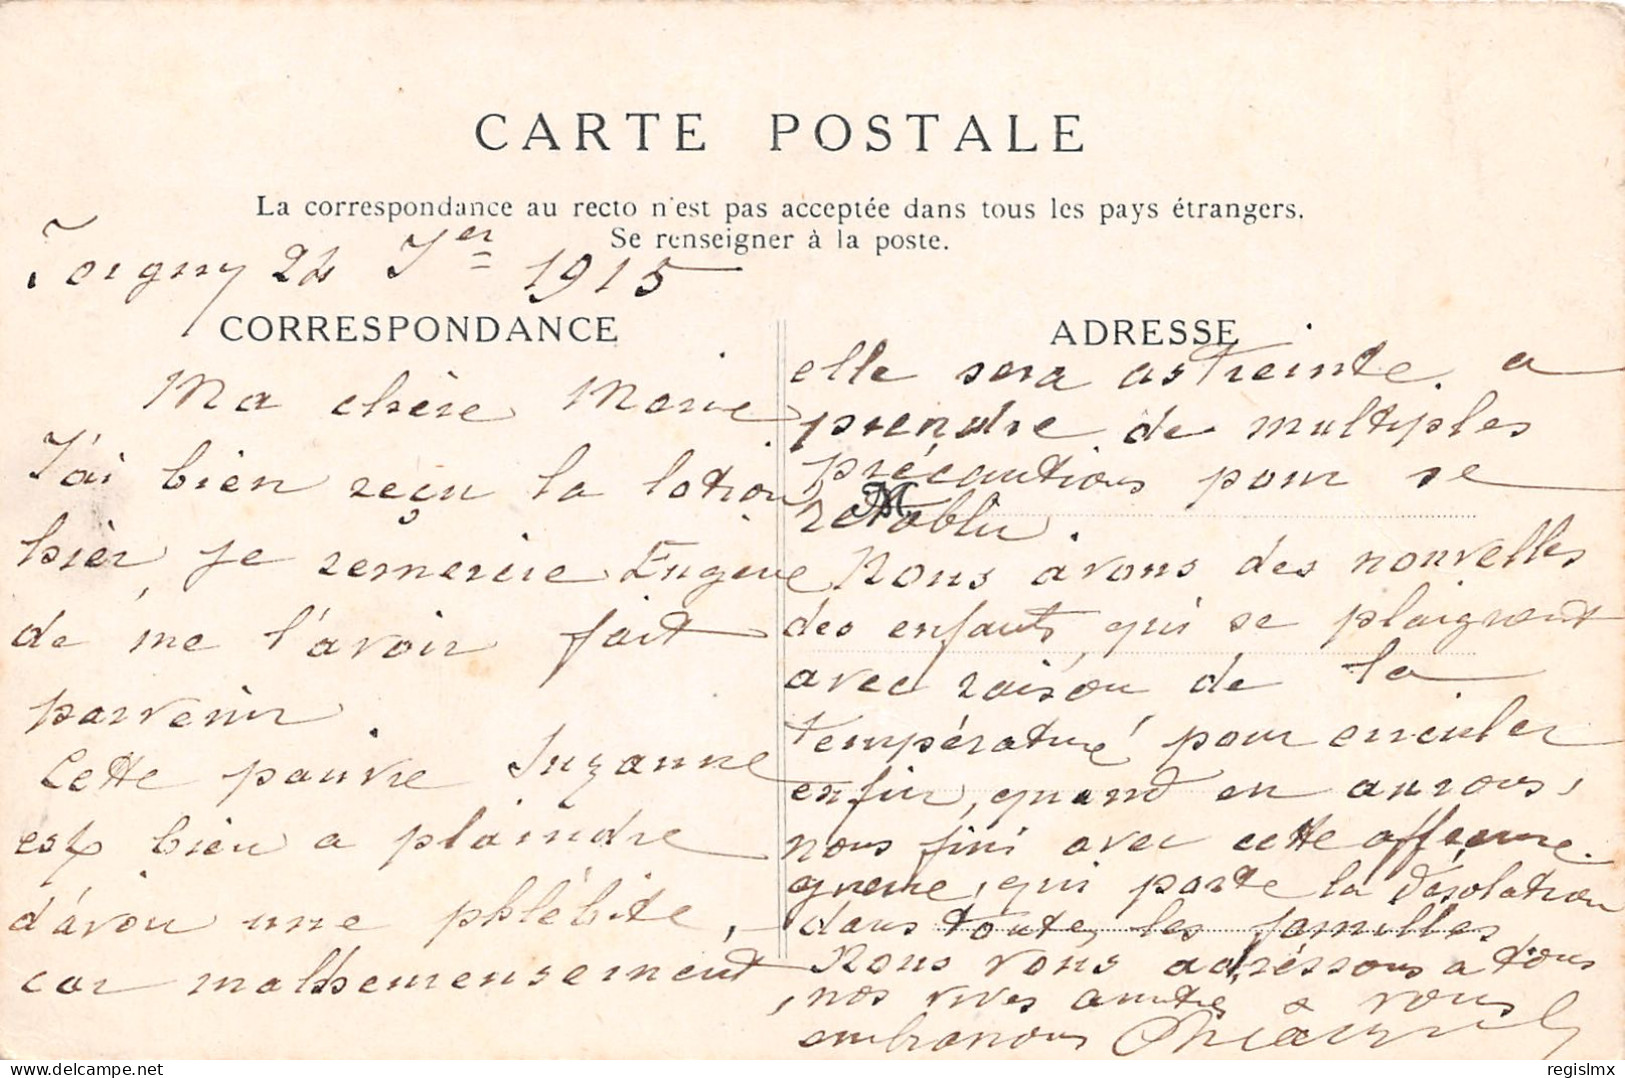 CARTE POSTALE
La correspondance au recto n'est pas acceptée dans tous les pays étrangers.
Se renseigner à la poste.
24 Jer 1915
CORRESPONDANCE
Ma chère Marie
J'ai bien reçu la lotion
hier, je remercie Eugène
de me l'avoir fait
parvenir.
Cette pauvre Suzanne
est bien a plaindre
d'avoir une phlébite,
car malheureusement
ADRESSE
elle sera astreinte a
prendre de multiples
précautions pour se
rétablir.
M
Nous avons des nouvelles
des enfants, qui se plaignent
avec raison de la
température pour circuler
enfin, quand en aurons,
nous fini avec cette affreuse
guerre, qui porte la désolation
dans toutes les familles
Nous vous adressons a tous
nos vives amitiés & vous
embrassons
regislmx